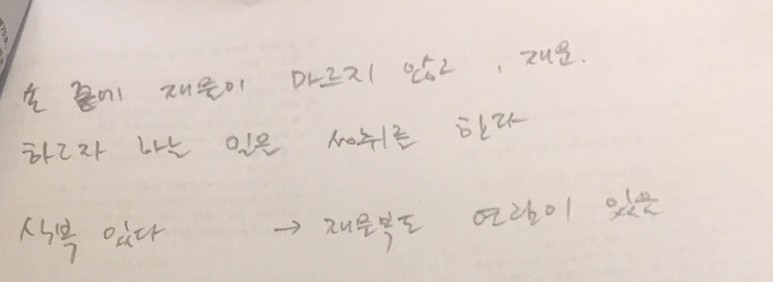 손 중에 재물이 마르지 않고, 재운.
하고자 하는 일은 성취를 한다
식복 있다 → 재물복도 연관이 있음